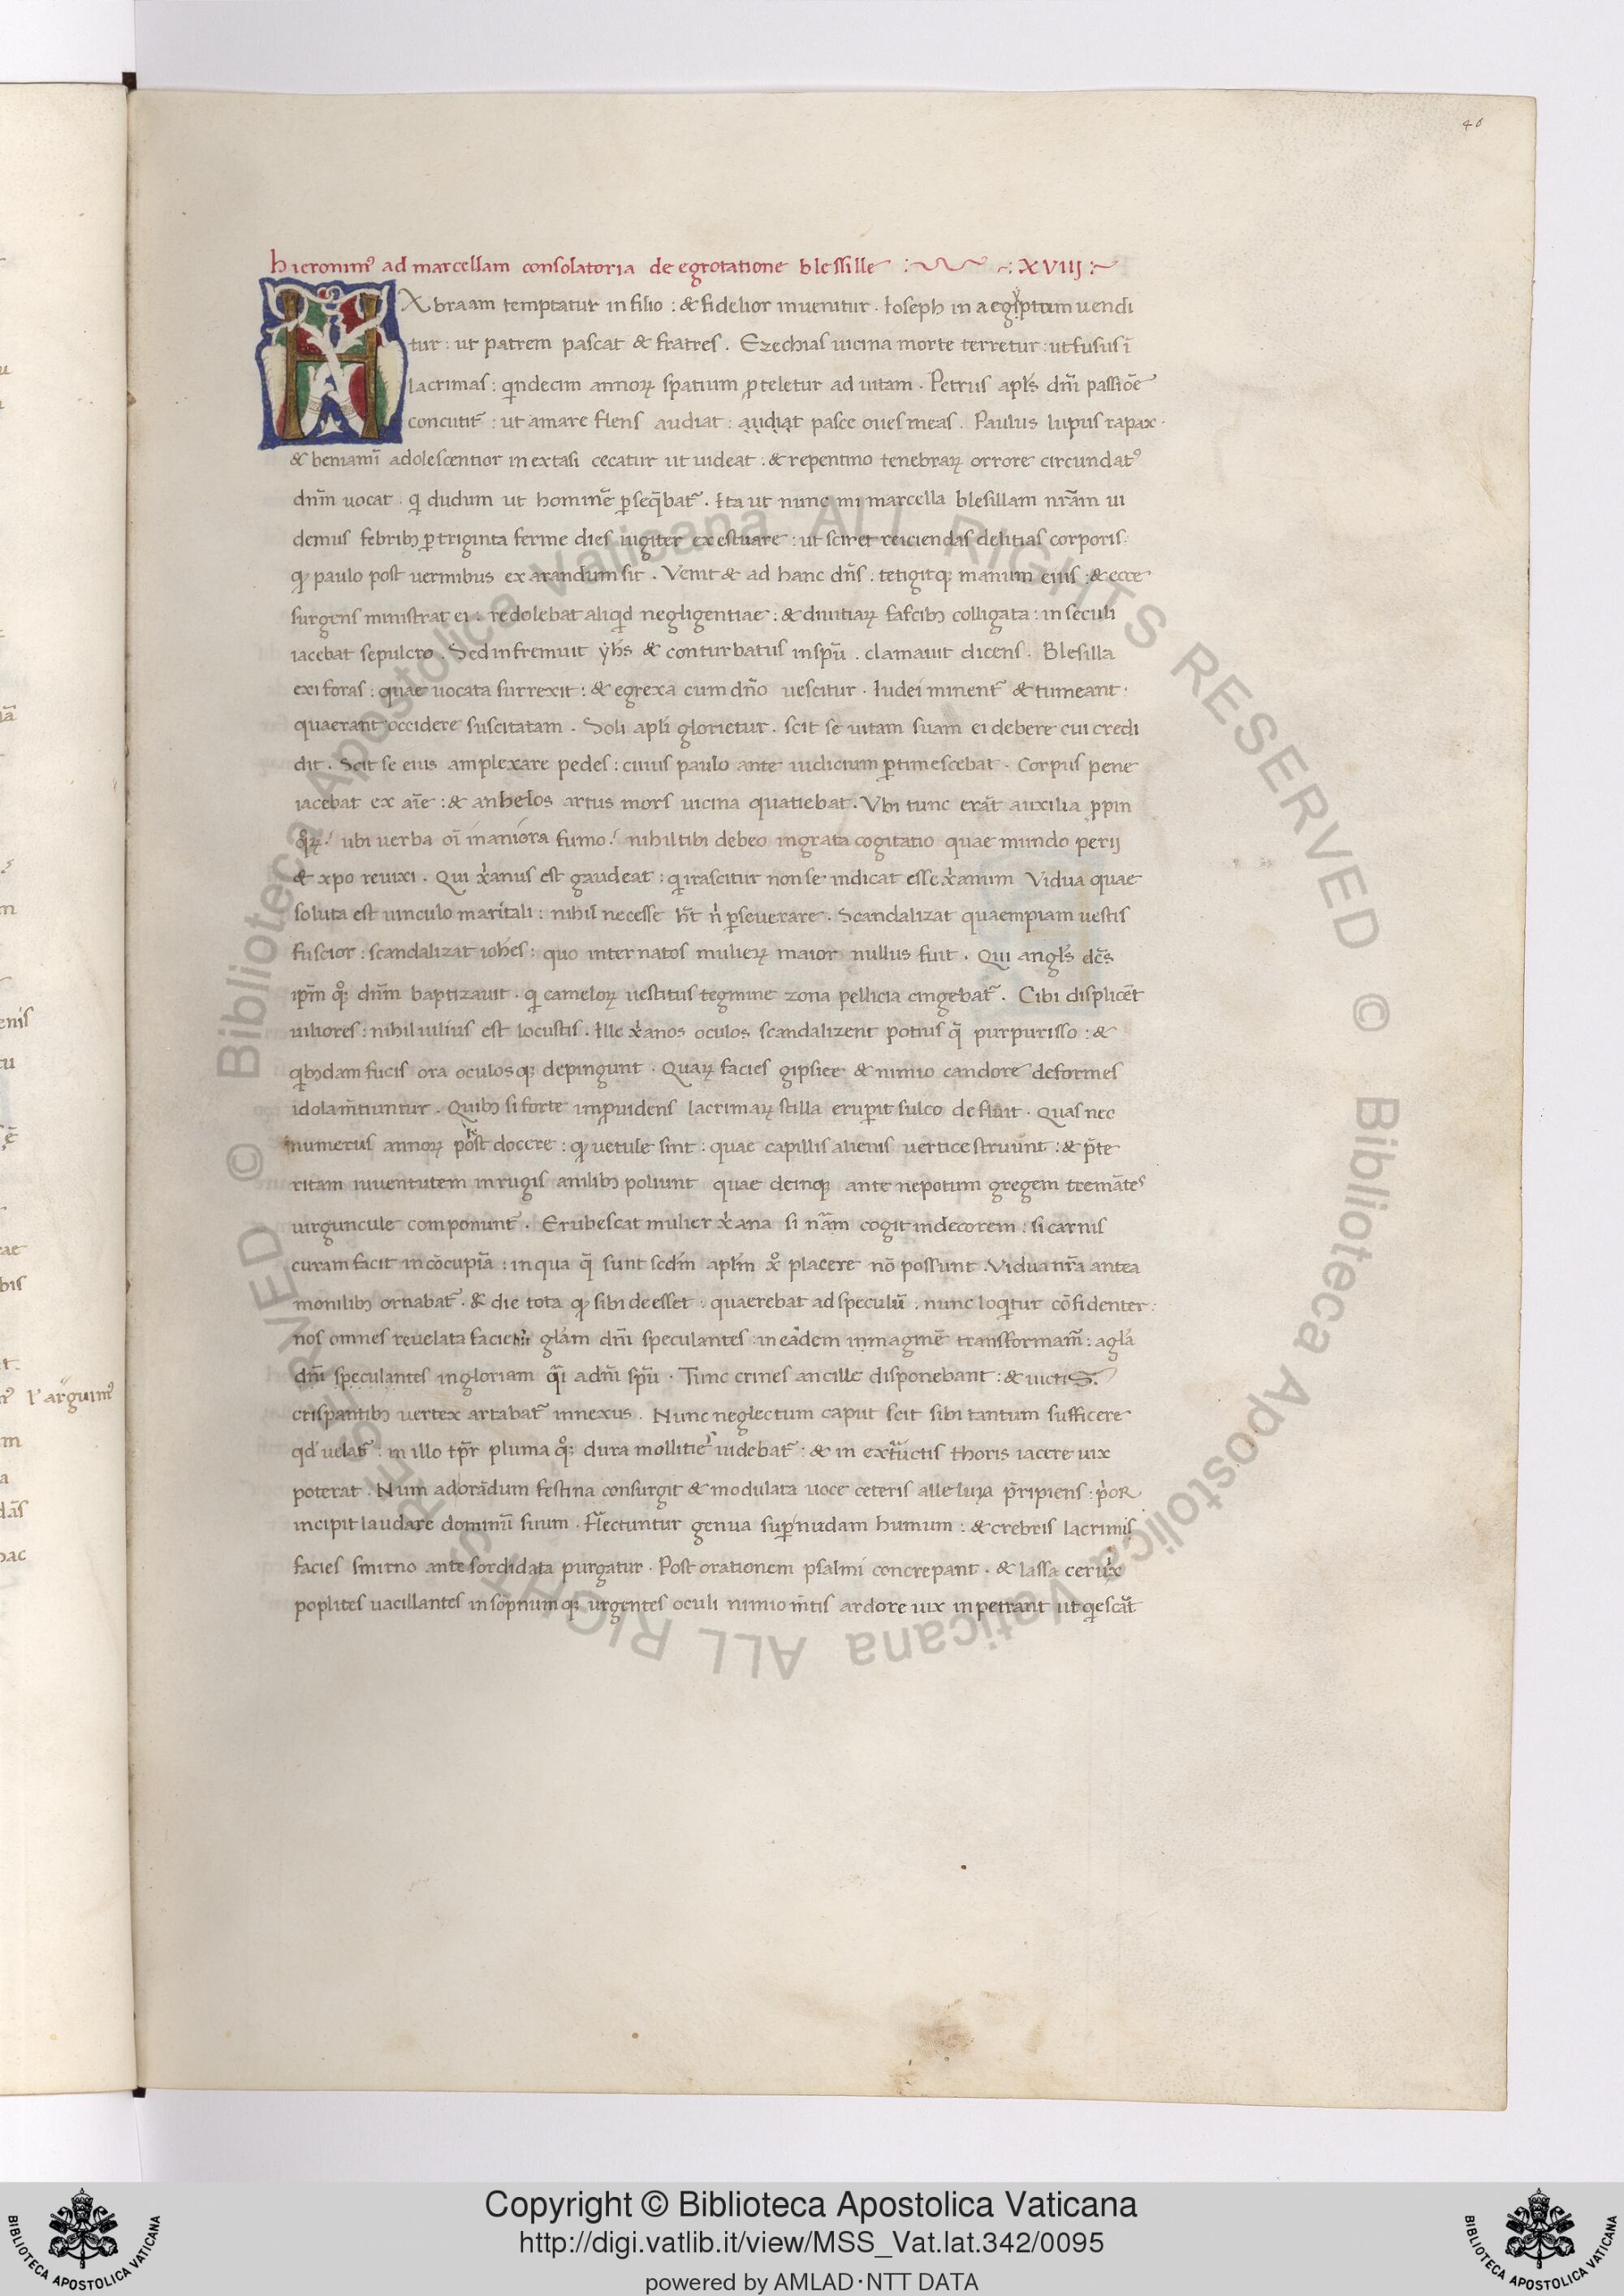 46
hieronim᷒ ad marcellam consolatoria de egrotatione blessille : ~ : XVIIJ : ~
Abraam temptatur in filio : & fidelior inuenitur . Ioseph in aegiptum uendi
tur : ut patrem pascat & fratres . Ezechias uicina morte terretur : ut fusus ī
lacrimas : qndecim annoꝝ spatium ꝓteletur ad uitam . Petrus apl's dn̄i passiōe
concutit᷑ : ut amare flens audiat : audiat pasce oues meas . Paulus lupus rapax .
& beniamī adolescentior in extasi cecatur ut uideat : & repentino tenebraꝝ orrore circundat᷒
dn̄m uocat . qi dudum ut hominē ꝑseq̄bat᷑ . Ita ut nunc mi marcella blesillam nr̄am ui
demus febribꝫ ꝑ triginta ferme dies iugiter ex estuare : ut sciret reiciendas delitias corporis :
qͥ paulo post uermibus ex arandum sit . Venit & ad hanc dn̄s . tetigitqꝫ manum eius : & ecce
surgens ministrat ei : redolebat aliqͥd negligentiae : & diuitiaꝝ fascibꝫ colligata : in seculi
iacebat sepulcro . Sed infremuit yh̄s & conturbatus in spū . clamauit dicens . Blesilla
exi foras : quae uocata surrexit : & egrexa cum dn̄o uescitur . Iudei minent᷑ & tumeant :
quaerant occidere suscitatam . Soli apl'i glorietur . scit se uitam suam ei debere cui credi
dit . Scit se eius amplexare pedes : cuius paulo ante iudicium ꝑtimescebat . Corpus pene
iacebat ex aīe : & anhelos artus mors uicina quatiebat . Vbi tunc erāt auxilia ꝓpin
qͦꝝ ? ubi uerba oī inaniora fumo ? nihil tibi debeo ingrata cogitatio quae mundo perij
& xpo reuixi . Qui xͥanus est gaudeat : qͥ irascitur non se indicat esse xͥanum Vidua quae
soluta est uinculo maritali : nihil necesse h̄t nͥ ꝑseuerare . Scandalizat quaempiam uestis
fuscior : scandalizat ioh̄es : quo inter natos mulieꝝ maior nullus fuit . Qui angl's dc̄s
ip̄m qͦꝫ dn̄m baptizauit . qi cameloꝝ uestitus tegmine zona pellicia cingebat᷑ . Cibi displicēt
uiliores : nihil uilius est locustis . Ille xͥanos oculos scandalizent potius q̄ purpurisso : &
qͥbꝫdam fucis ora oculosqꝫ depingunt . Quaꝝ facies gipsiee & nimio candore deformes
idola m̄tiuntur . Quibꝫ si forte imꝓuidens lacrimaꝝ stilla eruꝑit sulco defluit . Quas nec
numerus annoꝝ pōst docere : qͥ uetule sint : quae capillis alienis uertice struunt : & p̄te
ritam iuuentutem in rugis anilibꝫ poliunt quae deinqꝫ ante nepotum gregem tremātes
uirguncule componunt᷑ . Erubescat mulier xͥana si nām cogit indecorem : si carnis
curam facit in cōcupīa : in qua q̄ sunt scdm apl'm xͦ placere nō possunt . Vidua nr̄a antea
monilibꝫ ornabat᷑ . & die tota qͥ sibi deesset : quaerebat ad speculū . nunc loqͥtur cōfidenter :
nos omnes reuelata facie gl'am dn̄i speculantes : in eādem inmaginē transformam᷑ : a gl'a
dn̄i speculantes in gloriam qͣi a dn̄i spū . Tunc crines ancille disponebant : & uictis
crispantibꝫ uertex artabat᷑ innexus . Nunc neglectum caput scit sibi tantum sufficere
qd' uelat᷑ : in illo tp̄r pluma qͦꝫ dura mollities uidebat᷑ : & in extructis thoris iacere uix
poterat . Num adorādum festina consurgit & modulata uoce ceteris alleluia p̄ripiens : pͥor
incipit laudare dominū suum . Flectuntur genua suꝑ nudam humum : & crebris lacrimis
facies smirno ante sordidata purgatur . Post orationem psalmi concrepant . & lassa ceruix
poplites uacillantes in sōpnumqꝫ urgentes oculi nimio m̄tis ardore uix inpetrant ut qͥescāt
Copyright © Biblioteca Apostolica Vaticana
http://digi.vatlib.it/view/MSS_Vat.lat.342/0095
powered by AMLAD·NTT DATA
BIBLIOTECA APOSTOLICA VATICANA
BIBLIOTECA APOSTOLICA VATICANA
© Biblioteca Apostolica Vaticana ALL RIGHTS RESERVED © Biblioteca Apostolica Vaticana ALL RIGHTS RESERVED